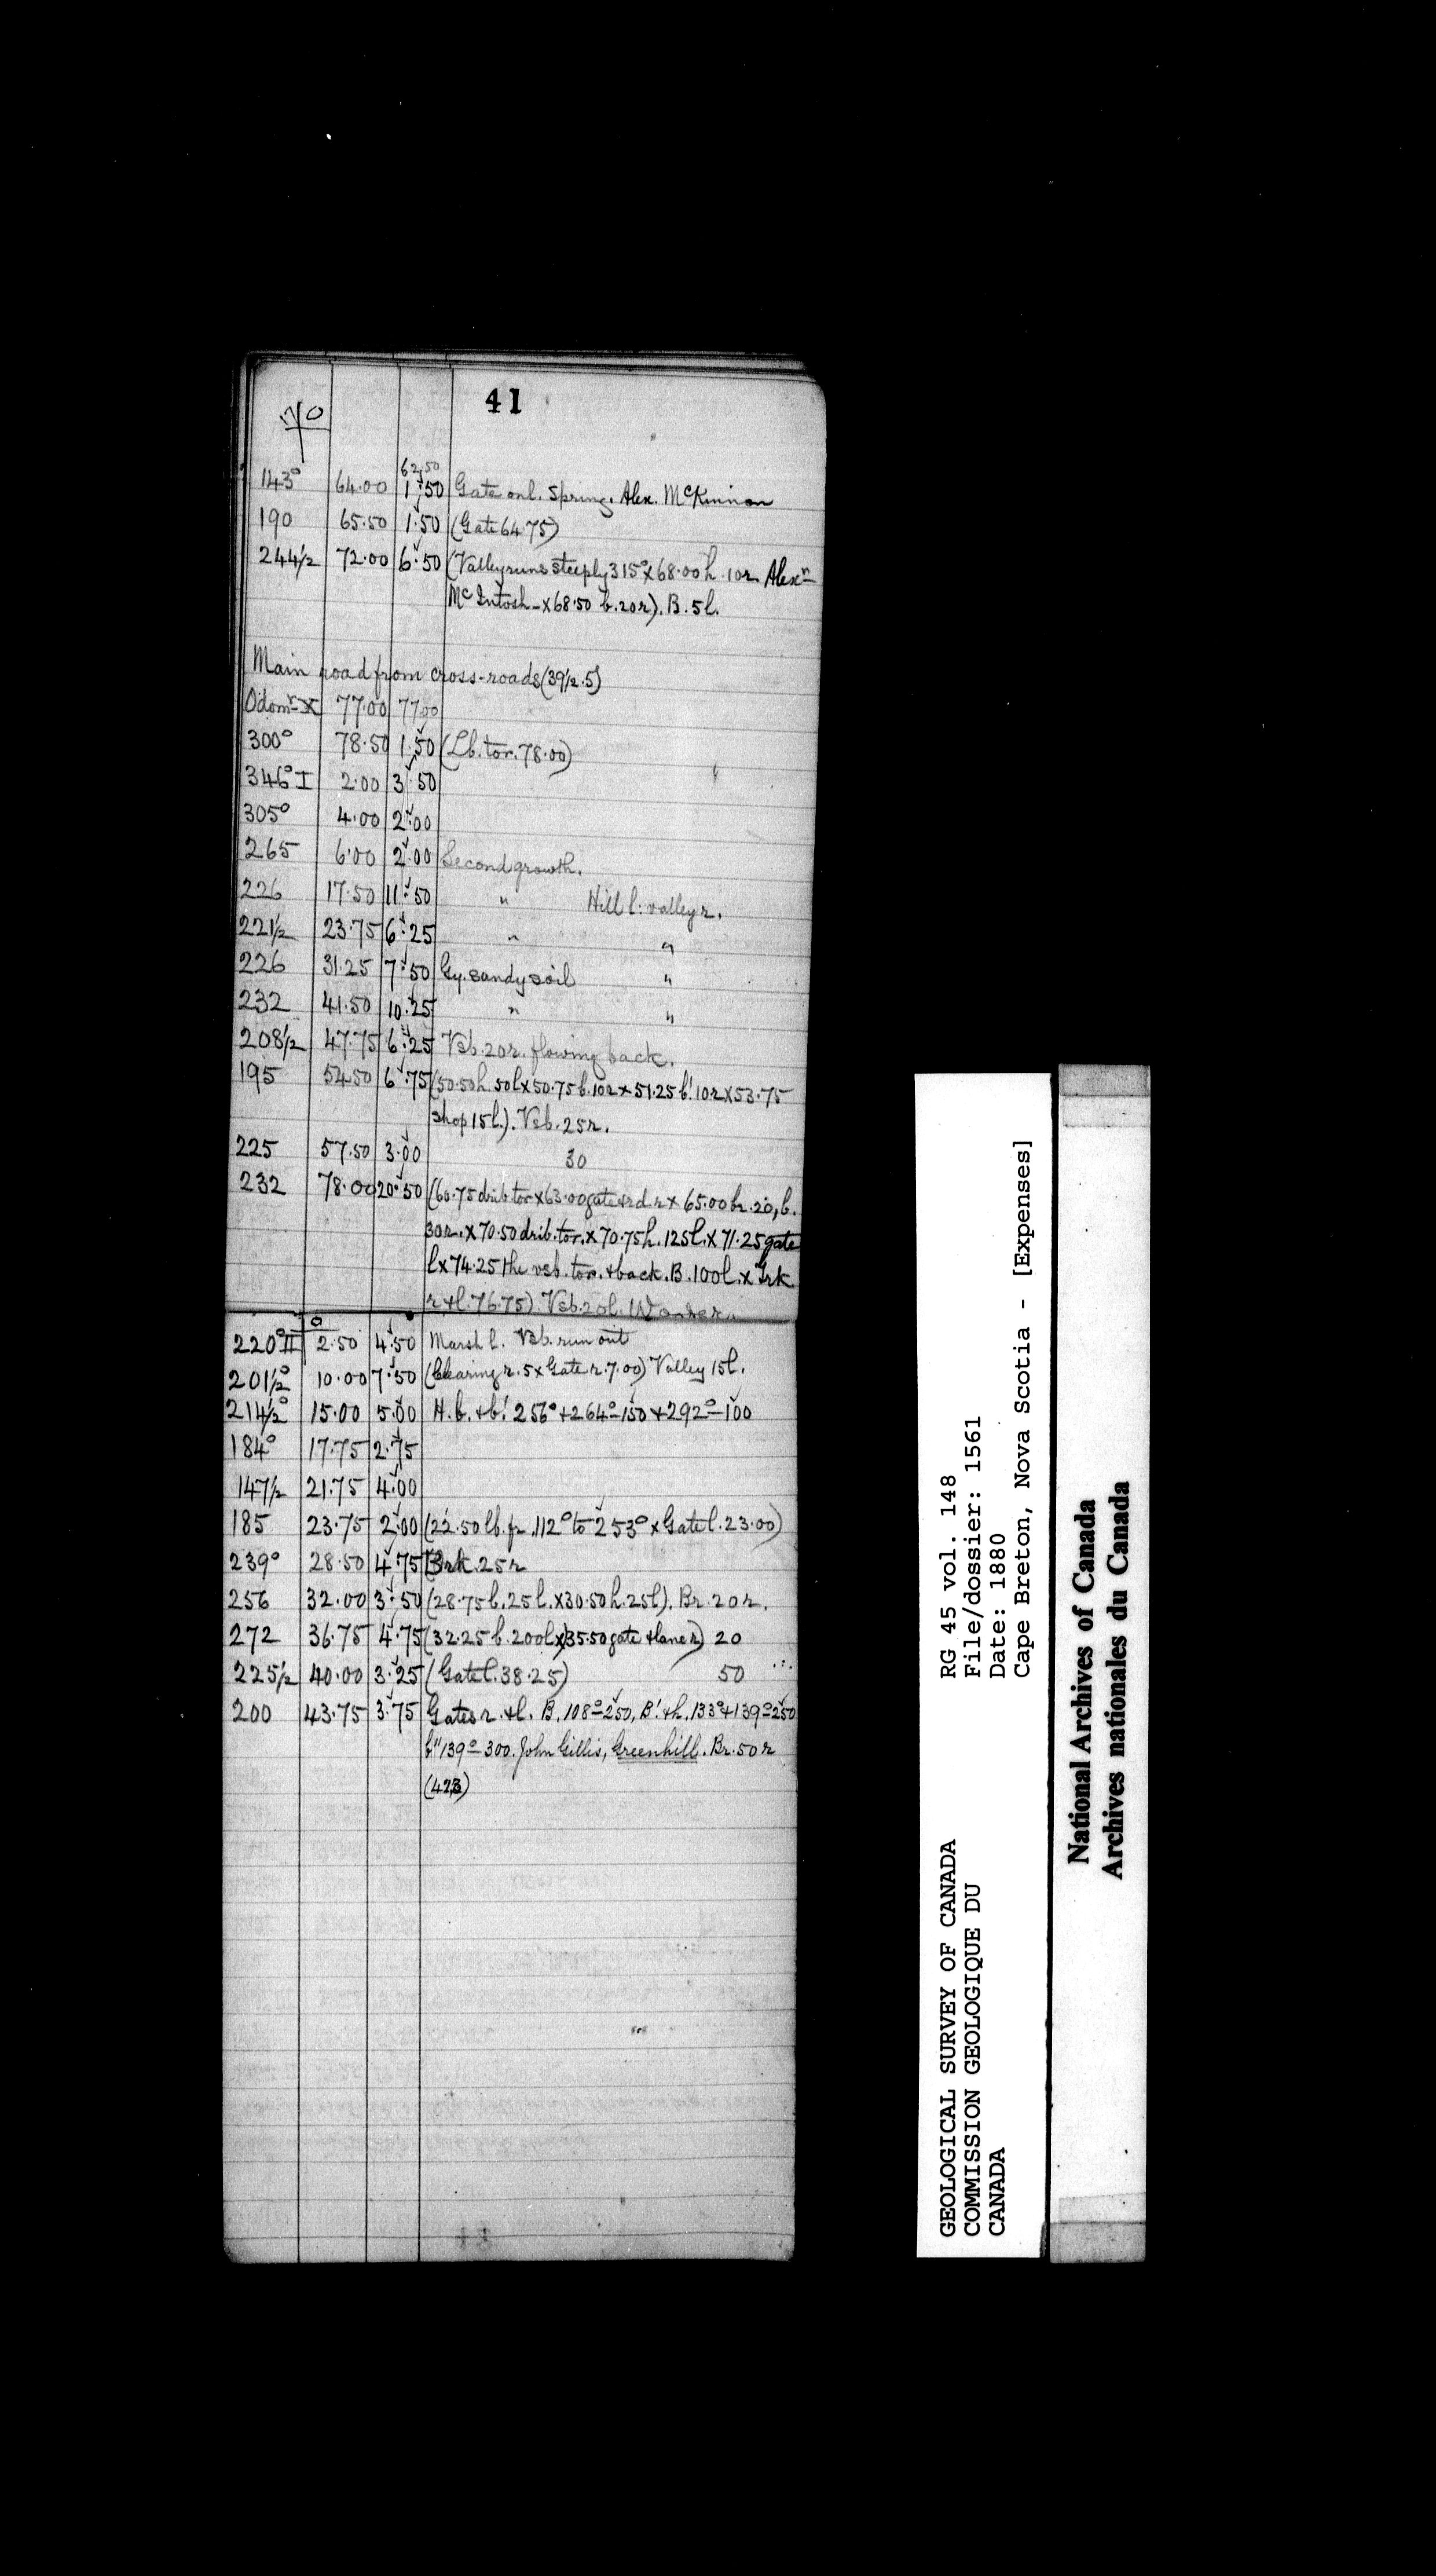 41
70
62.50
143° 64.00 1.50 Gate on l. Spring. Alex. McKinnon
190 65.50 1.50 (Gate 64.75)
244½ 72.00 6.50 (Valley runs steeply 315° x 68.00 h. 10r Alexr
McIntosh - x 68.50 b. 20r). B. 5l.
Main road from cross-roads (39½.5)
Odomr X 77.00 77.00
300° 78.50 1.50 (Lb. tor. 78.00)
346° I 2.00 3.50
305° 4.00 2.00
265 6.00 2.00 Second growth.
226 17.50 11.50 " Hill l. valley r.
221½ 23.75 6.25 " "
226 31.25 7.50 Gy. sandy soil "
232 41.50 10.25 " "
208½ 47.75 6.25 Vsb. 20r. flowing back.
195 54.50 6.75 (50.50 h. 50l x 50.75 b. 10r x 51.25 b' 10r x 53.75
shop 15l.). Vsb. 25r.
225 57.50 3.00 30
232 78.00 20.50 (60.75 drib tor x 63.00 gate & rd. r x 65.00 br. 20, b.
30r. x 70.50 drib. tor. x 70.75 h. 125l. x 71.25 gate
l x 74.25 the vsb. tor. & back. B. 100l. x Trk
r & l. 76.75). Vsb. 20l.
220° II 2.50 4.50 Marsh l. Vsb. run out
201½° 10.00 7.50 (Clearing r. 5 x Gate r. 7.00) Valley 15l.
214½° 15.00 5.00 H. b. & b.' 256° + 264° - 150 + 292° - 100
184° 17.75 2.75
147½ 21.75 4.00
185 23.75 2.00 (22.50 lb. fr. 112° to 253° x Gate l. 23.00)
239° 28.50 4.75 Brk. 25r
256 32.00 3.50 (28.75 b. 25l. x 30.50 h. 25l). Br. 20r.
272 36.75 4.75 (32.25 b. 200l x 35.50 gate & lane r) 20
225½ 40.00 3.25 (Gate l. 38.25) 50
200 43.75 3.75 Gates r. & l. B. 108° - 250, B' & h. 133° & 139° - 250
b" 139° - 300. John Gillis, Greenhill. Br. 50r
GEOLOGICAL SURVEY OF CANADA
COMMISSION GEOLOGIQUE DU
CANADA
RG 45 vol. 148
File/dossier: 1561
Date: 1880
Cape Breton, Nova Scotia - [Expenses]
National Archives of Canada
Archives nationales du Canada